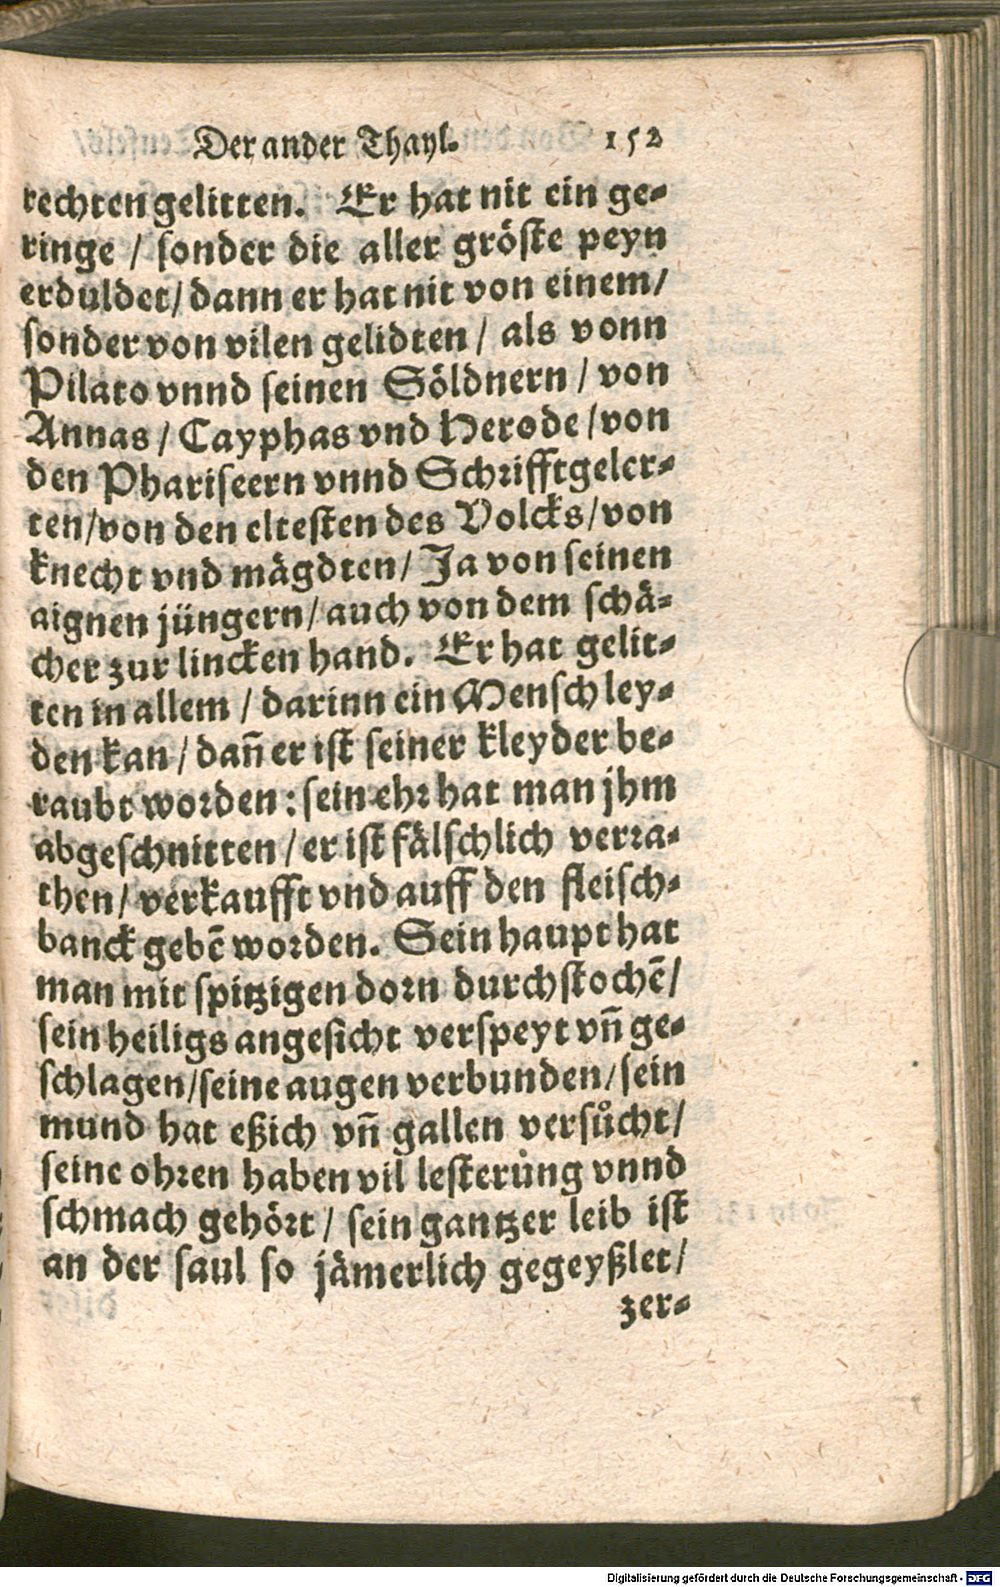 Der ander Thayl. 152
rechten gelitten. Er hat nit ein ge⸗
ringe / sonder die aller gröste peyn
erduldet / dann er hat nit von einem /
sonder von vilen gelidten / als vonn
Pilato vnnd seinen Söldnern / von
Annas / Cayphas vnd Herode / von
den Phariseern vnnd Schrifftgeler⸗
ten / von den eltesten des Volcks / von
knecht vnd mägdten / Ja von seinen
aignen jüngern / auch von dem schä⸗
cher zur lincken hand. Er hat gelit⸗
ten in allem / darinn ein Mensch ley⸗
den kan / dañ er ist seiner kleyder be⸗
raubt worden : sein ehr hat man jhm
abgeschnitten / er ist fälschlich verra⸗
then / verkaufft vnd auff den fleisch⸗
banck gebẽ worden. Sein haupt hat
man mit spitzigen dorn durchstochẽ /
sein heiligs angesicht verspeyt vñ ge⸗
schlagen / seine augen verbunden / sein
mund hat eßich vñ gallen versůcht /
seine ohren haben vil lesterůng vnnd
schmach gehört / sein gantzer leib ist
an der saul so jämerlich gegeyßlet /
zer⸗
Digitalisierung gefördert durch die Deutsche Forschungsgemeinschaft - DFG